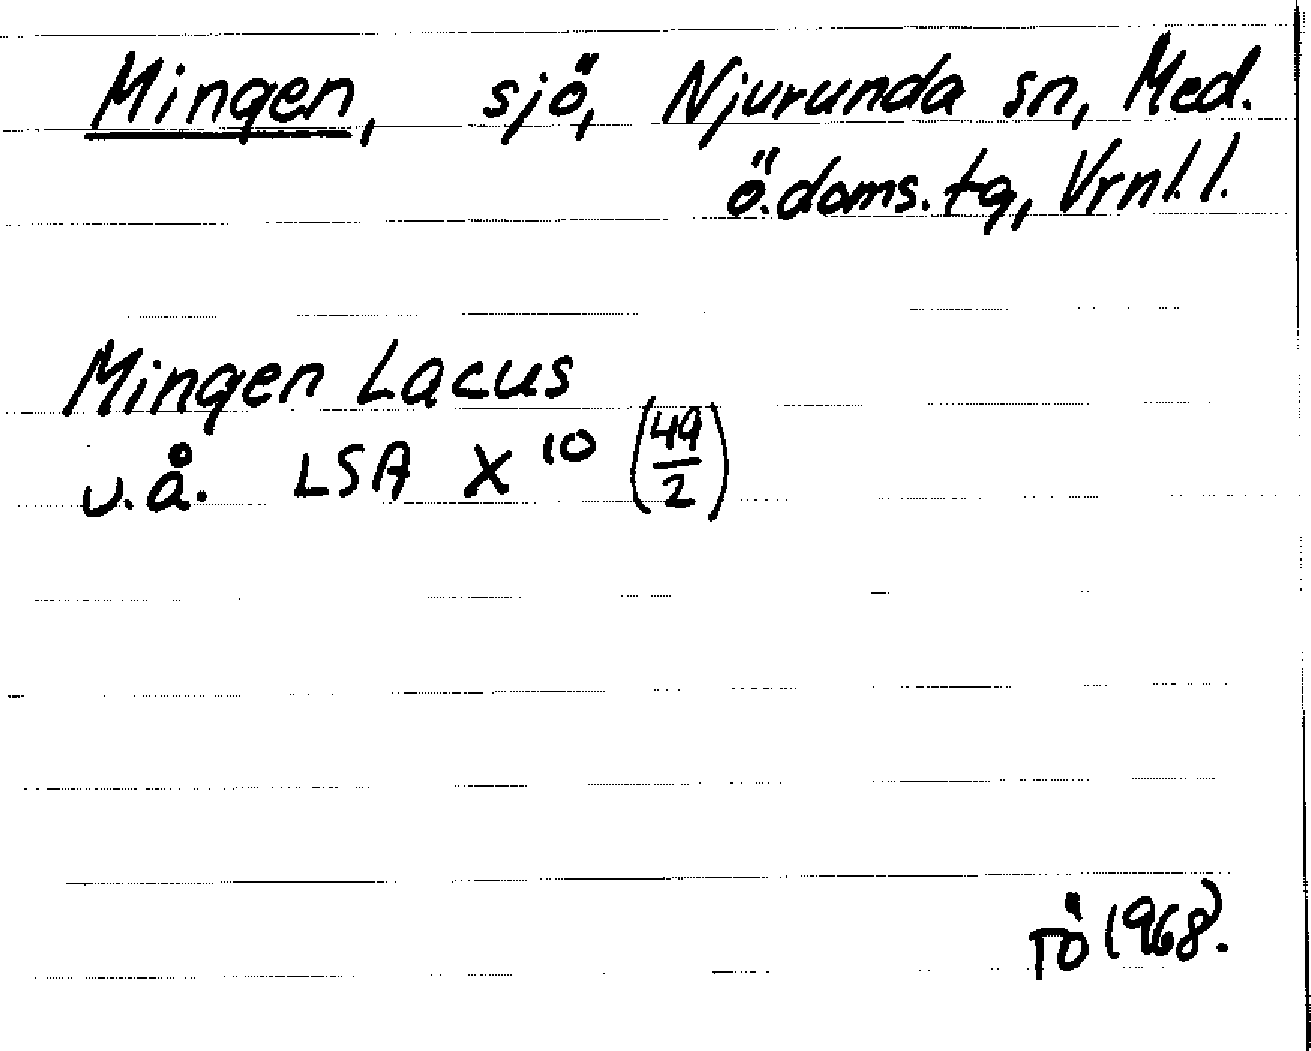 Mingen, sjö, Njurunda sn, Med.
ö.doms.tg, Vrnl.l.
Mingen Lacus
u.å. LSA X 10 (49/2)
TÖ (1968).